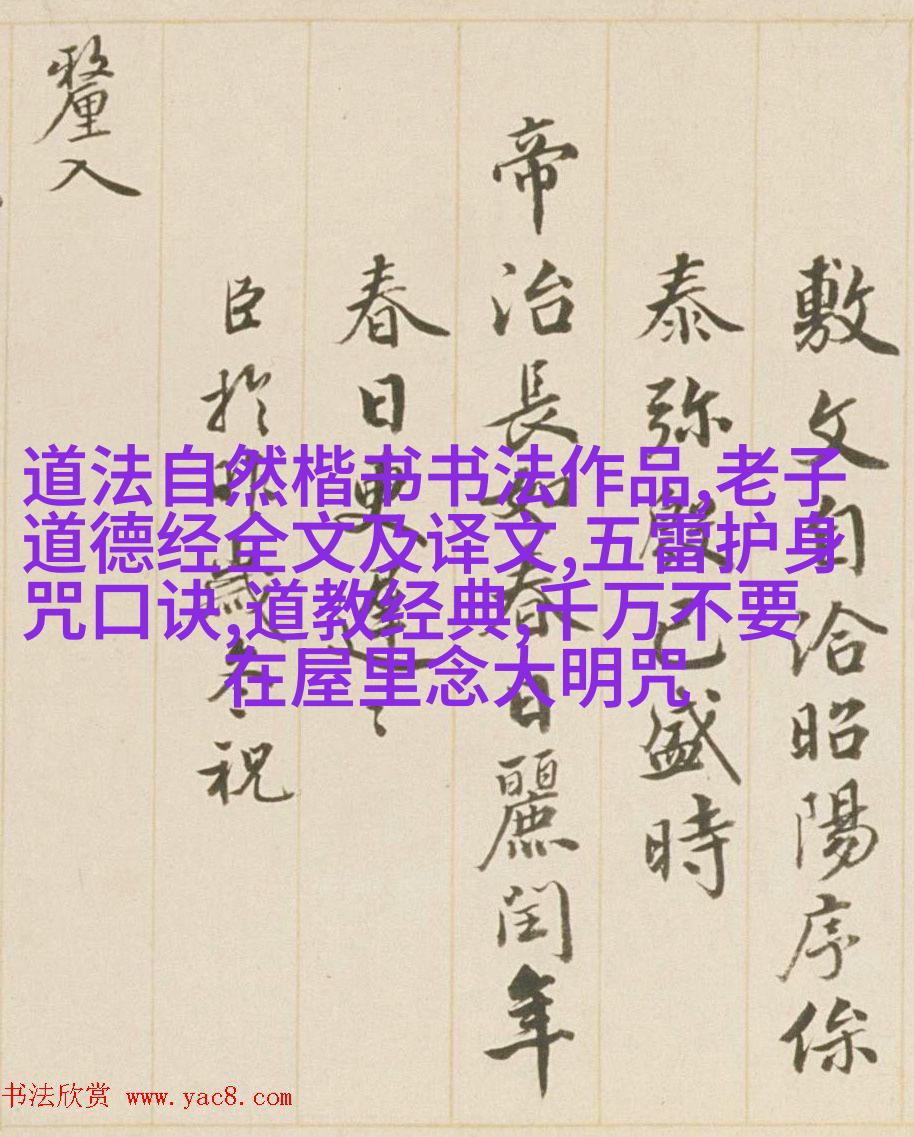 敷文自洽昭陽序
泰弥殷已盛時
帝治長如春日麗閏年
春日更遲〻
臣於祝
釐入
道法自然楷书书法作品,老子
道德经全文及译文,五雷护身
咒口诀,道教经典,千万不要
在屋里念大明咒
书法欣赏 www.yac8.com